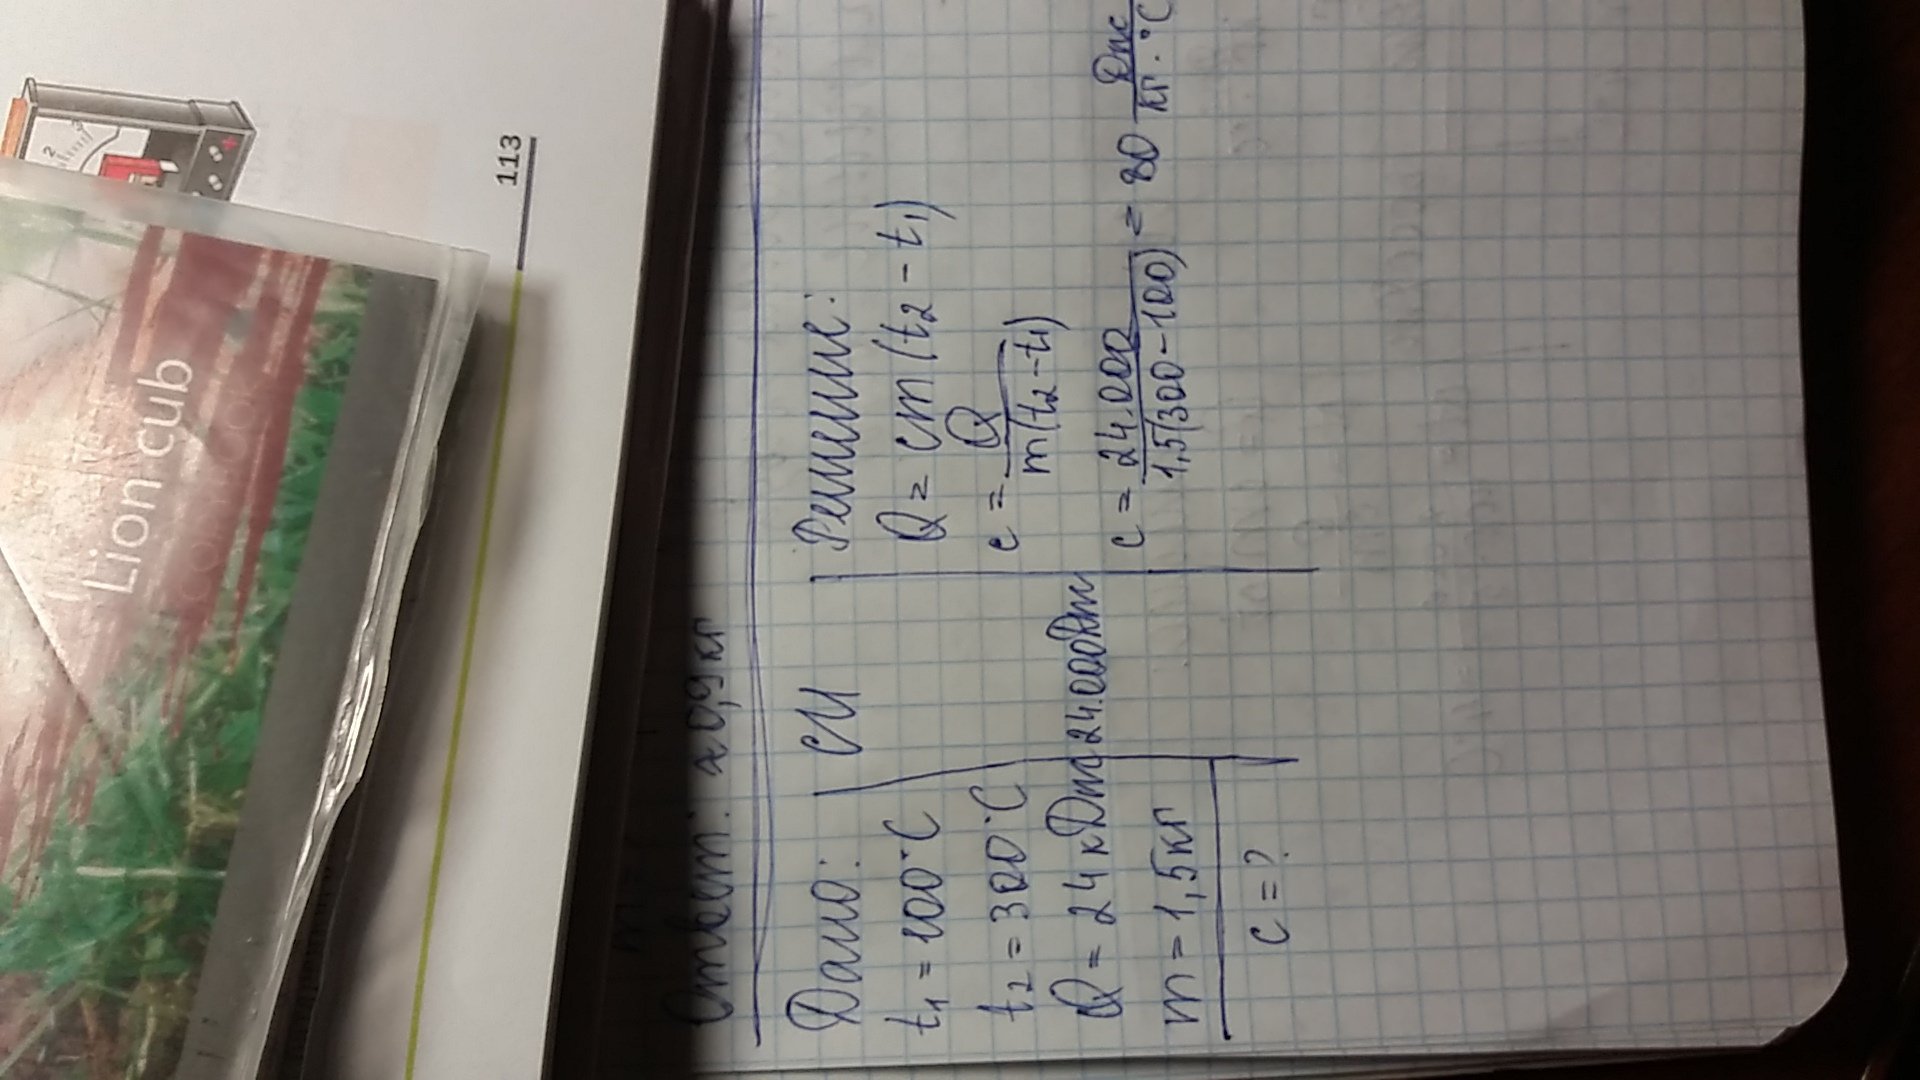 Lion cub
113
2
Ответ: ≈ 0,9 кг
Дано:
t₁ = 100°C
t₂ = 300°C
Q = 24 кДж
m = 1,5 кг
c = ?
СИ
24.000 Дж
Решение:
Q = cm (t₂ - t₁)
c = Q / m(t₂ - t₁)
c = 24.000 / 1,5(300 - 100) = 80 Дж / кг · °C